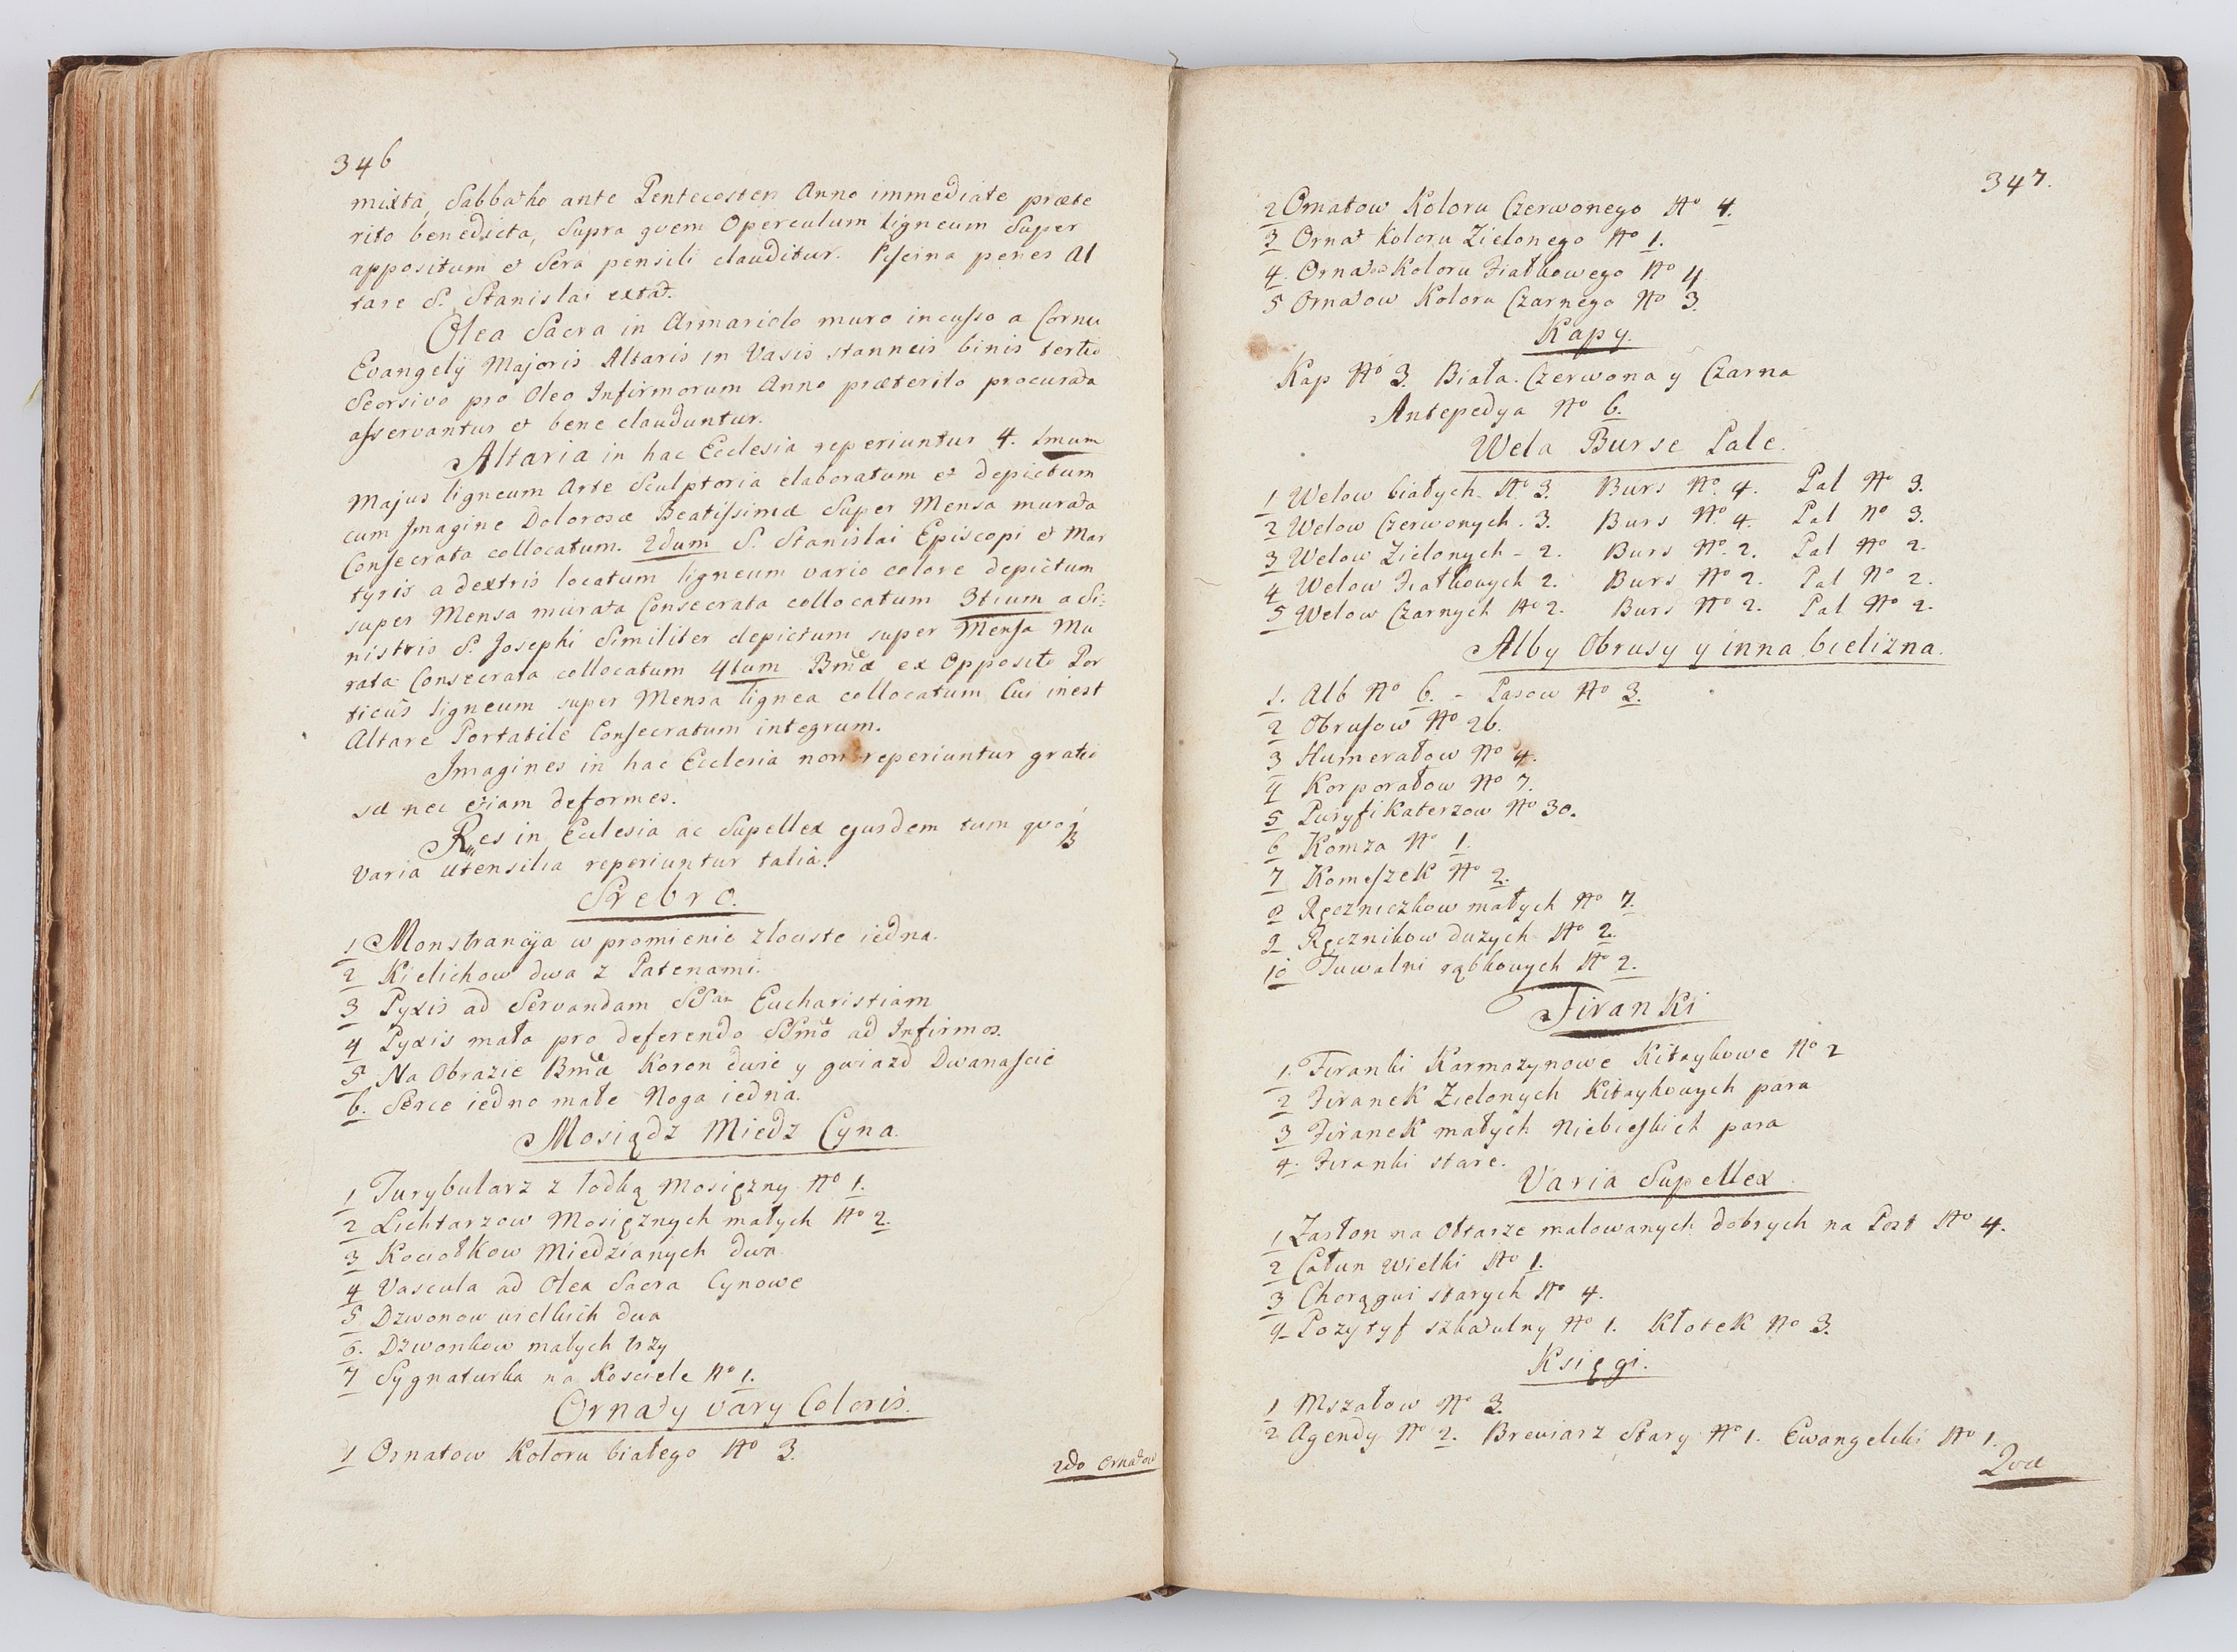 346
mixta, Sabbatho ante Pentecosten Anno immediate præte
rito benedicta, Supra quem Operculum ligneum Super
appositum et Sera pensili clauditur. Piscina penes Al
tare S. Stanislai extat.
Olea Sacra in Armariolo muro incusso a Cornu
Evangelij Majoris Altaris in Vasis stanneis binis tertio
Seorsivo pro Oleo Infirmorum Anno præterito procurata
asservantur et bene clauduntur.
Altaria in hac Ecclesia reperiuntur 4. 1mum
Majus ligneum Arte Sculptoria elaboratum et depictum
cum Imagine Dolorosæ Beatissimæ Super Mensa murata
Consecrata collocatum. 2dum S. Stanislai Episcopi et Mar
tyris a dextris locatum ligneum vario colore depictum
super Mensa murata Consecrata collocatum 3tium a Si:
nistris S. Josephi Similiter depictum super Mensa Mu
rata Consecrata collocatum 4tum Bmæ ex Opposito Por
ticus ligneum super Mensa lignea collocatum, Cui inest
Altare Portatile Consecratum integrum.
Imagines in hac Ecclesia non reperiuntur gratio
sæ nec etiam deformes.
Res in Ecclesia ac Supellex ejusdem tum quoq
varia utensilia reperiuntur talia.
Srebro.
1 Monstrancyja w promienie złociste iedna.
2 Kielichow dwa z Patenami.
3 Pyxis ad Servandam SSam Eucharistiam
4 Pyxis mała pro deferendo SSmo ad Infirmos.
5 Na Obrazie Bmæ Koron dwie y gwiazd Dwanascie
6. Serce iedno małe Noga iedna.
Mosiądz Miedz Cyna.
1 Turybularz z łodką Mosiężny No 1.
2 Lichtarzow Mosiężnych małych No 2.
3 Kociołkow Miedzianych dwa
4 Vascula ad Olea Sacra Cynowe
5 Dzwonow wielkich dwa
6. Dzwonkow małych trzy
7 Sygnaturka na Kosciele No 1.
Ornaty vary Coloris.
1 Ornatow Koloru białego No 3.
2do Ornatow
347.
2 Ornatow Koloru Czerwonego No 4.
3 Ornat Koloru Zielonego No 1.
4. Ornatow Koloru Fiałkowego No 4
5 Ornatow Koloru Czarnego No 3.
Kapy.
Kap No 3. Biała. Czerwona y Czarna
Antepedya No 6.
Wela Burse Pale.
1 Welow białych No 3. Burs No. 4. Pal No 3.
2 Welow Czerwonych. 3. Burs No. 4. Pal No 3.
3 Welow Zielonych - 2. Burs No. 2. Pal No 2.
4 Welow Fiałkowych 2. Burs No 2. Pal No 2.
5 Welow Czarnych No 2. Burs No 2. Pal No 2.
Alby Obrusy y inna bielizna.
1. Alb No 6. - Pasow No 3.
2 Obrusow No 26.
3 Humerałow No 4.
4 Korporałow No 7.
5 Puryfikaterzow No 30.
6 Komza No 1.
7 Komeszek No 2.
8 Ręczniczkow małych No 7.
9 Ręcznikow dużych No 2.
10 Tuwalni rąbkowych No 2.
Firanki
1. Firanki Karmazynowe Kitaykowe No 2
2 Firanek Zielonych Kitaykowych para
3 Firanek małych Niebieskich para
4. Firanki stare.
Varia Supellex
1 Zasłon na Ołtarze malowanych dobrych na Post No 4.
2 Całun Wielki No 1.
3 Chorągwi starych No 4.
4 Pozytyf szkatulny No 1. Kłotek No 3.
Księgi.
1 Mszałow No 3.
2 Agendy No 2. Breviarz Stary No 1. Ewangeliki No 1.